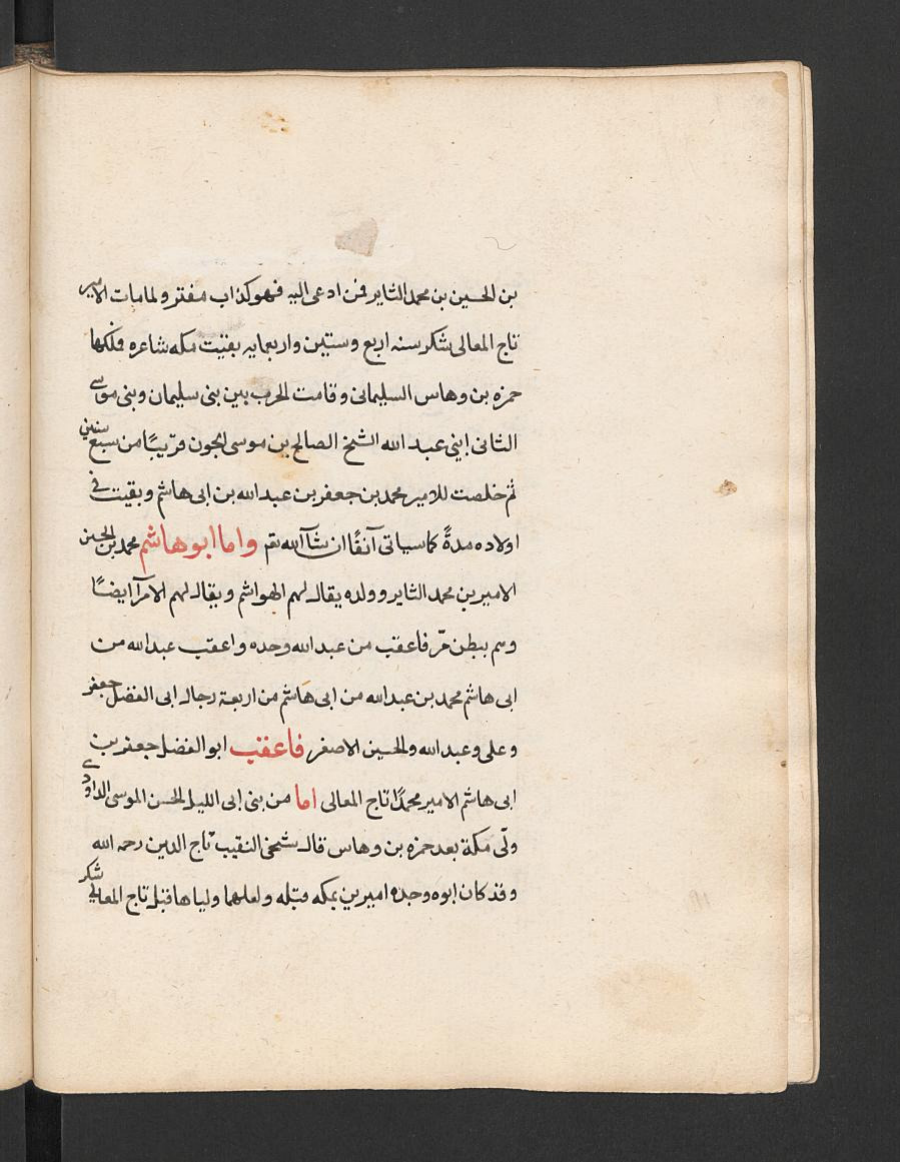 بن الحسين بن محمد الثاير فمن ادعى اليه فهو كذاب مفتر ولما مات الامير
تاج المعالى شكر سنه اربع وستين واربعمايه بقيت مكه شاغره فملكها
حمزه بن وهاس السليمانى وقامت الحرب بين بنى سليمان وبنى موسى
الثانى ابنى عبد الله الشيخ الصالح بن موسى الجون قريبًا من سبع سنين
ثم خلصت للامير محمد بن جعفر بن عبد الله بن ابى هاشم وبقيت فى
اولاده مدةً كما سياتى آنفًا ان شآ الله تع واما ابو هاشم محمد بن الحسين
الامير بن محمد الثاير وولده يقال لهم الهواشم ويقال لهم الامرآ ايضًا
وهم ببطن مرّ فاعقب من عبد الله وحده واعقب عبد الله من
ابى هاشم محمد بن عبد الله من ابى هاشم من اربعة رجال ابى الفضل جعفر
وعلى وعبد الله والحسين الاصغر فاعقب ابو الفضل جعفر بن
ابى هاشم الامير محمدًا تاج المعالى اما من بنى ابى الليل الحسن الموسى الداودى
ولّى مكة بعد حمزه بن وهاس قال شيخى النقيب تاج الدين رحمه الله
وقد كان ابوه وجده اميرين بمكه قبله ولعلهما ولياها قبل تاج المعالى شكر